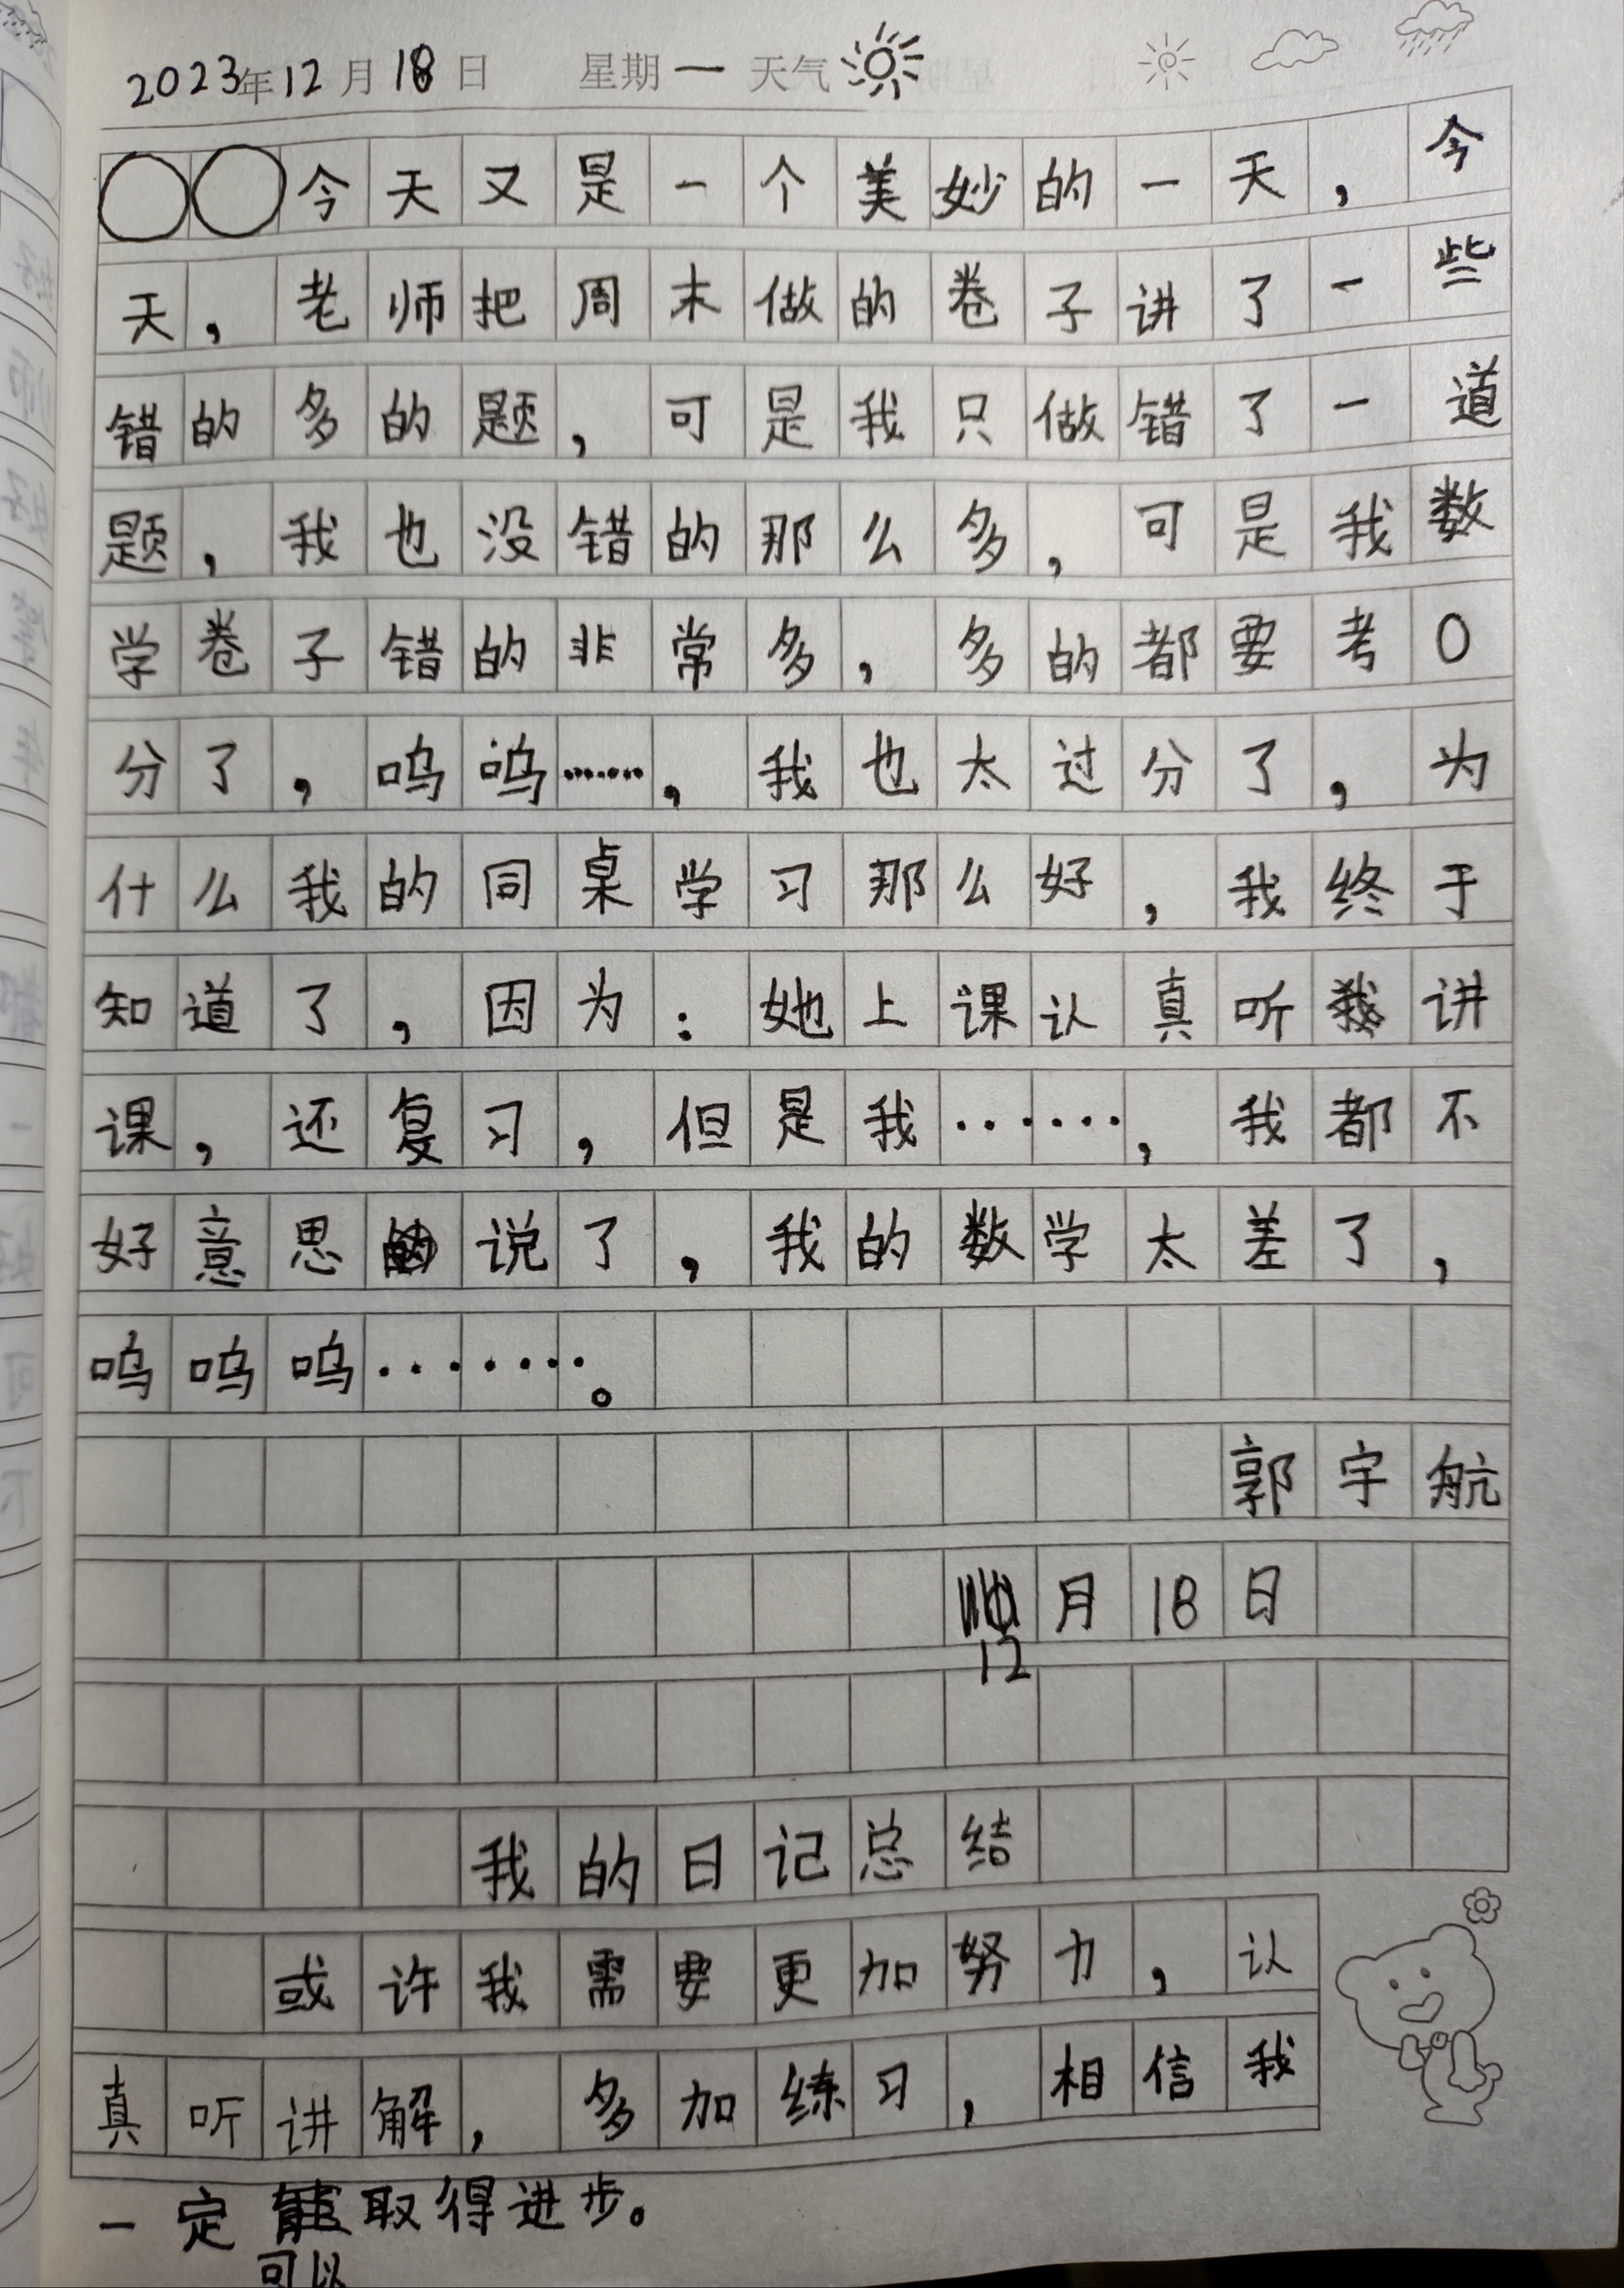 2023年12月18日 星期一 天气
今天又是一个美妙的一天，今
天，老师把周末做的卷子讲了一些
错的多的题，可是我只做错了一道
题，我也没错的那么多，可是我数
学卷子错的非常多，多的都要考0
分了，呜呜……，我也太过分了，为
什么我的同桌学习那么好，我终于
知道了，因为：她上课认真听讲
课，还复习，但是我……，我都不
好意思说了，我的数学太差了，
呜呜呜……。
郭宇航
12月18日
我的日记总结
或许我需要更加努力，认
真听讲解，多加练习，相信我
一定可以取得进步。